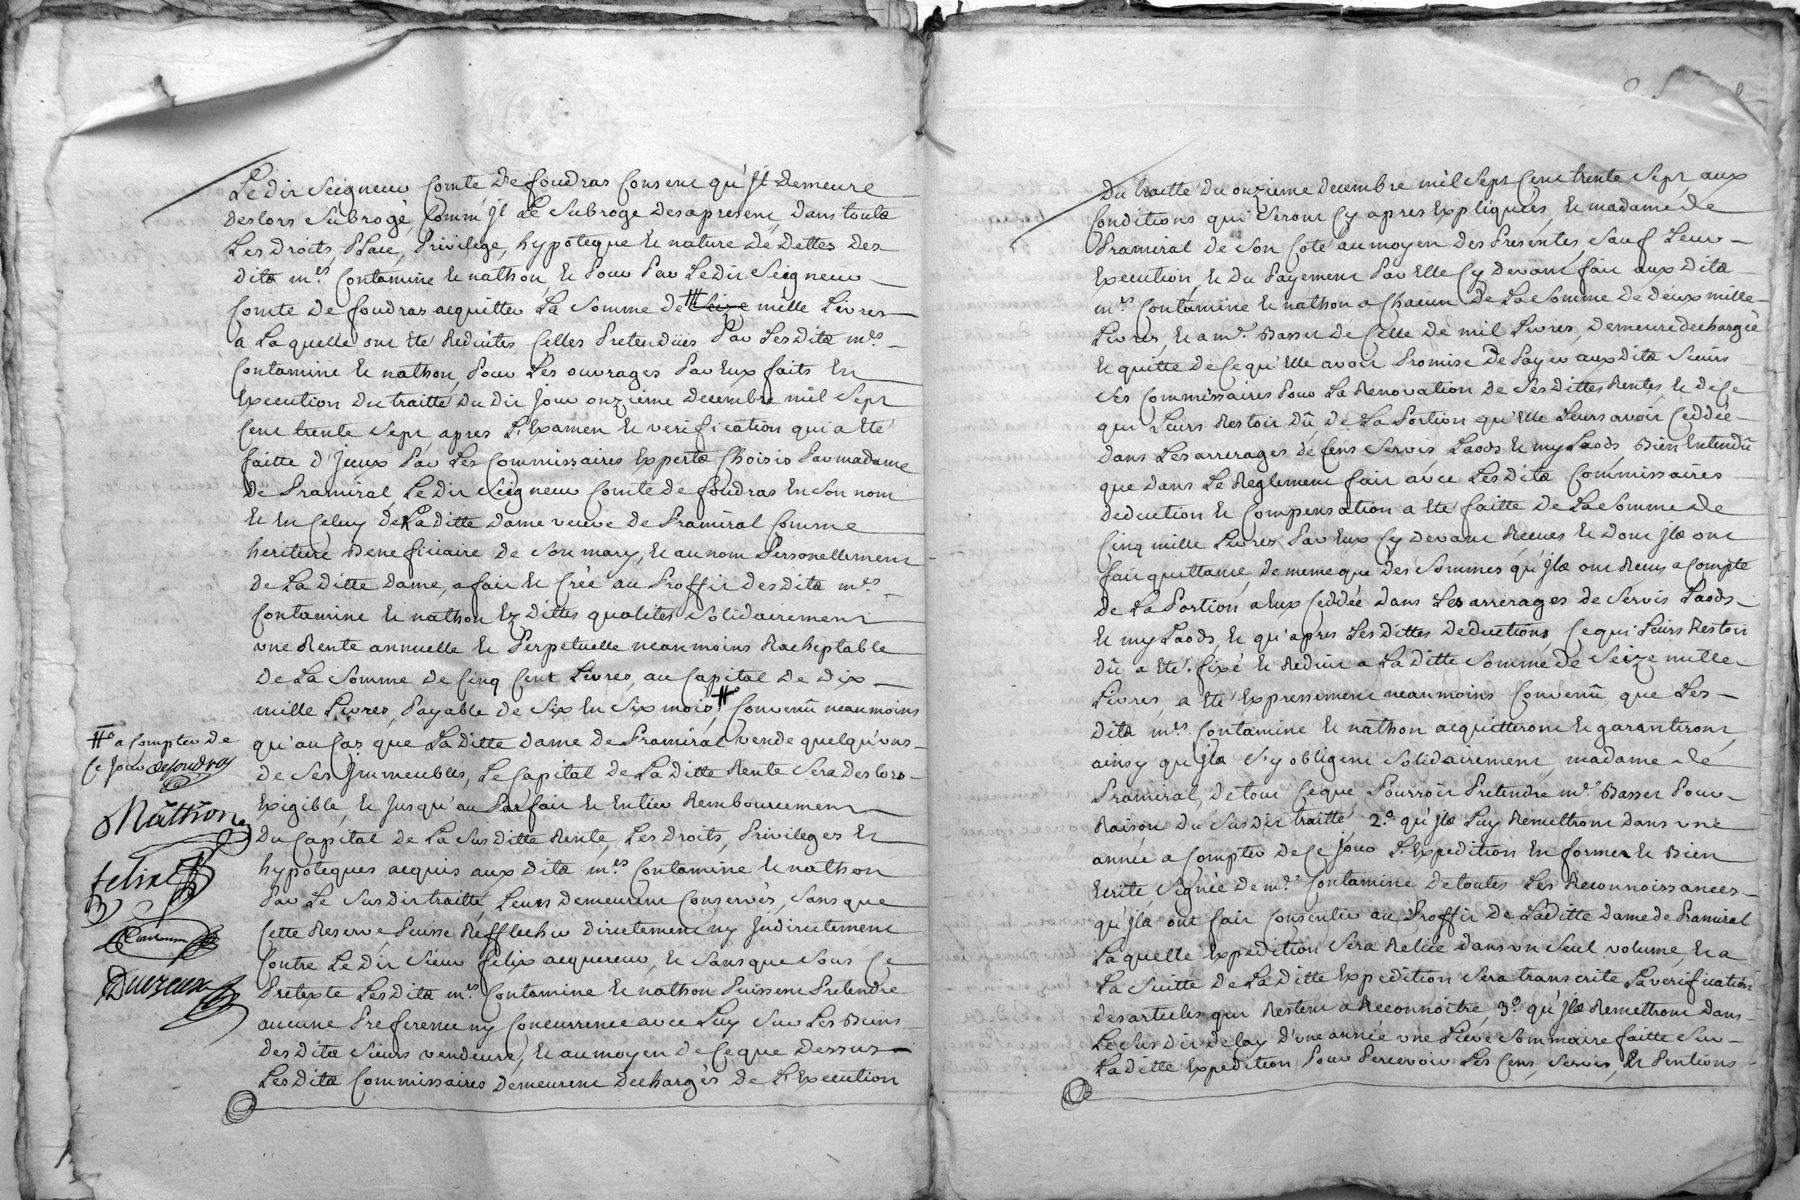 Le dit Seigneur Comte De foudras Consent qu'Jl Demeure
Deslors Subrogé, Comm' Jl Le Subroge Desapresent, Dans toute
Les Droits, Place, Privilege, hypoteque et nature de Dettes Des
dits mes Contamine et nathon, et Pour Par Le dit Seigneur
Comte De foudras acquitter La Somme De mille Livres
a Laquelle ont Eté Reduites Celles Pretendües Par Les Dits mes
Contamine et nathon, Pour Les ouvrages Par Eux faits En
Execution Du traitté Du dit Jour onzieme Decembre mil Sept
Cent trente Sept, apres L'Examen et verification qui a Eté
faitte d'Jceux Par Les Commissaires Experts Choisis Par madame
De Pramiral, Le dit Seigneur Comte de foudras En Son nom
Et En Celuy De Laditte Dame veuve de Pramiral Comme
heritiere Beneficiaire de Son mary, et au nom Personellement
de La ditte Dame, a fait et Créé au Proffit Desdits mes
Contamine et nathon Ez dittes qualités Solidairement
une Rente annuelle et Perpetuelle neanmoins Racheptable
de La Somme de Cinq Cent Livres, au Capital De Dix
mille Livres, Payable de Six En Six mois, # Convenû neanmoins
qu'au Cas que Laditte Dame De Pramiral vende quelqu'uns
de Ses Jmmeubles, Le Capital de Laditte Rente Sera Deslors
Exigible, et Jusqu'au Parfait et Entier Remboursement
Du Capital de La Susditte Rente, Les Droits, Privileges et
hypoteques acquis aux Dits mes Contamine et nathon
Par Le Susdit traitté Leurs Demeurent Conservés, Sans que
Cette Reserve Puisse Reflechir Directement ny Jndirectement
Contre Le dit Sieur felix acquereur, et Sans que Sous Ce
Pretexte Les dits mes Contamine et nathon Puissent Pretendre
aucune Preference ny Concurrence avec Luy Sur Les Biens
Desdits Sieurs vendeurs, Et au moyen De Ce que Dessus
Les Dits Commissaires Demeurent Dechargés De L'Execution
# a Compter de
Ce Jour defoudras
Nathon
felix
Contamine
Duczeux
Du traitté Du onzieme Decembre mil Sept Cent trente Sept aux
Conditions qui Seront Cy apres Expliquées, et madame de
Pramiral de Son Coté au moyen des Presentes, Sauf Leur
Execution, et Du Payement Par Elle Cy devant fait aux Dits
mes Contamine et nathon a Chacun De La Somme De deux mille
Livres, et a me Basset De Celle De mil Livres, Demeure dechargée
et quitte De Ce qu'Elle avoit Promise De Payer aux dits Sieurs
Ses Commissaires Pour La Renovation de Ses Dittes Rentes, et de Ce
qui Leurs Restoit Dû De La Portion qu'Elle Leurs avoit Ceddée
dans Les arrerages de Cens Servis Laods et myLaods Bien Entendû
que dans Le Reglement fait avec Les Dits Commissaires
deduction et Compensation a Eté faitte de La Somme de
Cinq mille Livres Par Eux Cy devant Recues et dont Jls ont
fait quittance, de meme que des Sommes qu'Jls ont Recus a Compte
de La Portion a Eux Ceddée dans Les arrerages de Servis Laods
et myLaods, et qu'apres Les dittes Deductions, Ce qui Leurs Restoit
dû a Eté fixé et Reduit a La ditte Somme de Seize mille
Livres, a Eté Expressement neanmoins Convenû que Les
dits mes Contamine et nathon acquitteront et garantiront,
ainsy qu'Jls S'y obligent Solidairement, madame de
Pramiral, de tout Ce que Pourroit Pretendre me Basset Pour
Raison Du Susdit traitté 2.o qu'Jls Luy Remettront dans une
année a Compter de Ce Jour L'Expedition En forme et Bien
Ecrite Signée de me Contamine De toutes Les Reconnoissances
qu'Jls ont fait Consentir au Proffit de Laditte Dame de Pramiral
Laquelle Expedition Sera Reliée dans un Seul volume, et a
La Suitte de La ditte Expedition Sera transcrite La verification
des articles qui Restent a Reconnoitre, 3.o qu'Jls Remettront Dans
Le Susdit Delay d'une année une Lieve Sommaire faitte Sur
Laditte Expedition Pour Percevoir Les Cens, Servis, et Pentions